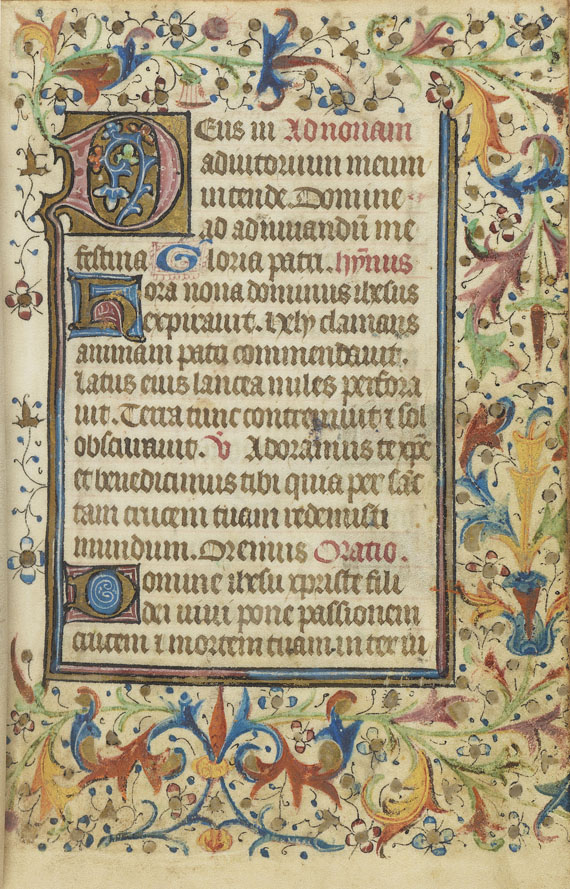 Deus in Ad nonam
adiutorium meum
intende. Domine
ad adiuuandū me
festina Gloria patri. hȳnus
Hora nona dominus ihesus
expirauit. hely clamans
animam patri commendauit.
latus eius lancea miles perfora
uit. Terra tunc contremuit ⁊ sol
obscurauit. V Adoramus te xp̄e
et benedicimus tibi quia per sāc
tam crucem tuam redemisti
mundum. Oremus Oratio.
Domine ihesu xpriste fili
dei uiui pone passionem
crucem ⁊ mortem tuam. inter iu